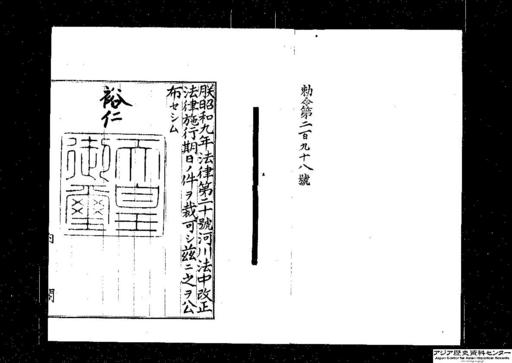 勅令第二百九十八號
朕昭和九年法律第二十號河川法中改正
法律施行期日ノ件ヲ裁可シ茲ニ之ヲ公
布セシム
裕仁
天皇
御璽
内閣
アジア歴史資料センター
Japan Center for Asian Historical Records